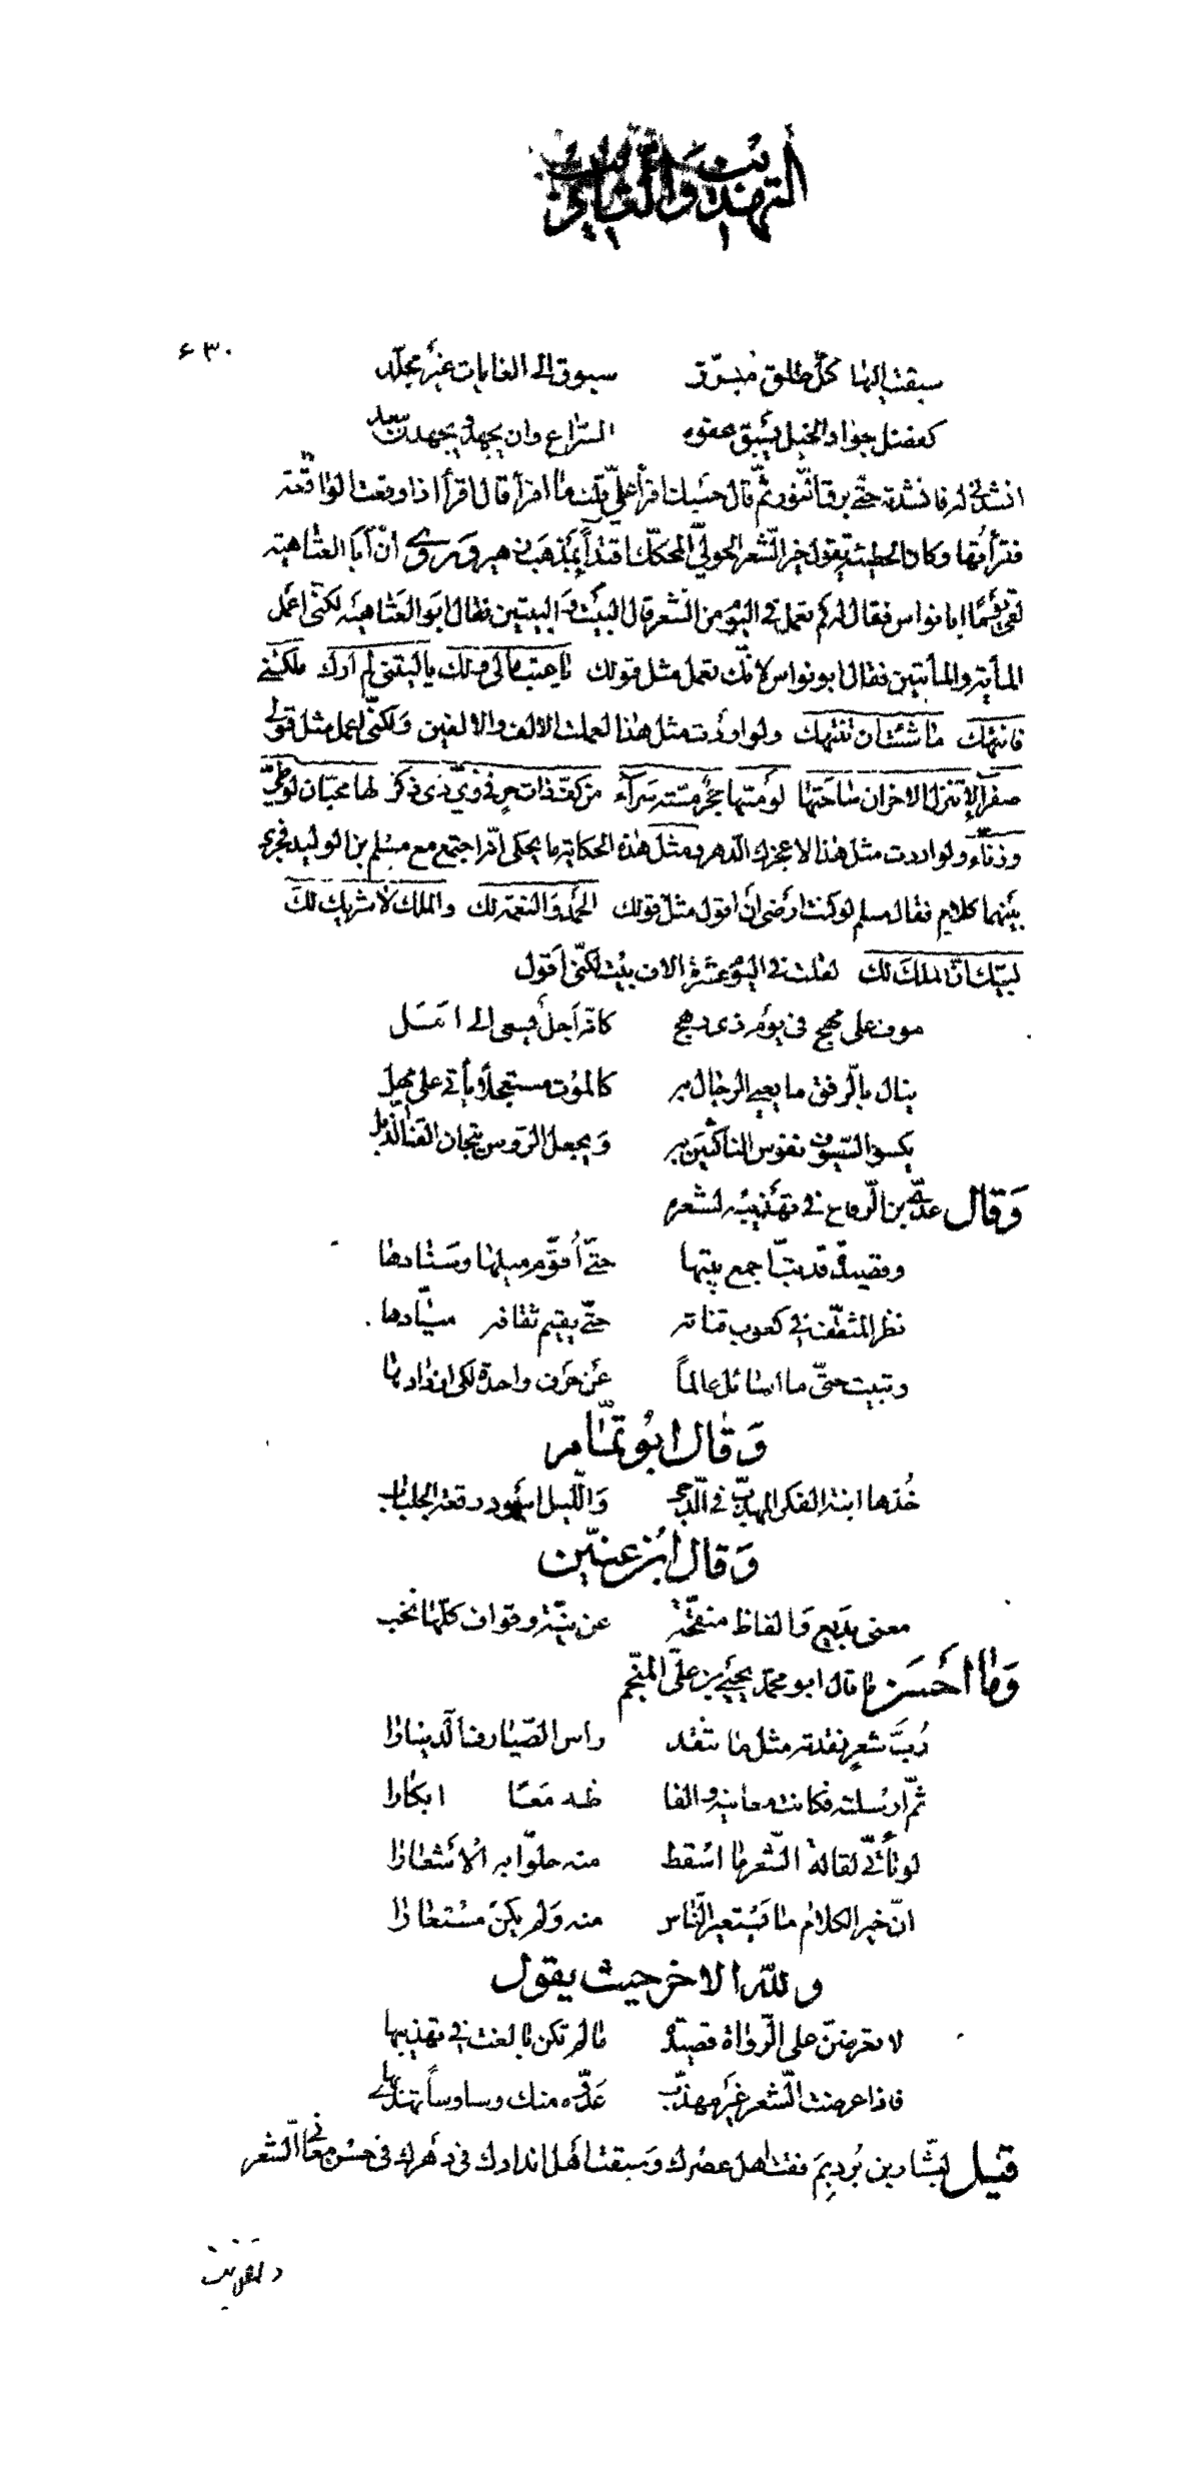 التهذيب والتأديب
٦٣٠
سبقت اليها كلّ طلق مبرّز سبوق الى الغايات غير مجلّد
كفضل جواد الخيل يسبق عفوه السّراع وان يجهد ويجهدن يبعد
انشدنى له فانشدته حتّى برق الفجر ثمّ قال حسبك اقرأ علىّ قلت ما اقرأ قال اقرأ اذا وقعت الواقعة
فقرأتها وكان الحطيئة يقول خير الشّعر الحولىّ المحكّك اقتداءً بمذهب زهير وروى انّ ابا العتاهية
لقى يومًا ابا نواس فقال له كم تعمل فى اليوم من الشّعر قال البيت والبيتين فقال ابو العتاهيه لكنّى اعمل
المأية والمأتين فقال ابو نواس لانّك تعمل مثل قولك يا عتب مالى ولك يا ليتنى لم ارك ملكتنى
فانتهك ما شئت ان تنتهك ولو اردت مثل هذا لعملت الالف والالفين ولكنّى اعمل مثل قولى
صفراء لا تنزل الاحزان ساحتها لو مسّها حجر مسّته سرّاء من كفّ ذات حر فى زىّ ذى ذكر لها محبّان لوطىّ
وزنّاء ولو اردت مثل هذا لاعجزك الدّهر ومثل هذه الحكاية ما يحكى انّه اجتمع مع مسلم بن الوليد فجرى
بينهما كلام فقال مسلم لو كنت ارضى أن اقول مثل قولك الحمد والنعمة لك والملك لا شريك لك
لبّيك انّ الملك لك لقلت فى اليوم عشرة الاف بيت لكنّى اقول
موف على مهج فى يوم ذى رهج كانّه اجل يسعى الى امل
ينال بالرّفق ما يعيى الرّجال به كالموت مستعجلا يأتى على مهل
يكسو السّيوف نفوس الناكثين به ويجعل الرّوس تيجان القنا الذّبل
وقال عدىّ بن الرّقاع فى تهذيبه لشعره
وقصيدة قد بتّ اجمع بيتها حتّى أقوّم ميلها وسنادها
نظر المثقّف فى كعوب قناته حتّى يقيم ثقافه ميّادها
وتبيت حتّى ما اسائل عالماً عن حرف واحدة لكى ازدادها
وقال ابو تمّام
خذها ابنة الفكر المهذّب فى الدّجى واللّيل اسود رقعة الجلباب
وقال ابن عنين
معنى بديع والفاظ منقّحة عن بيّنة وقواف كلّها نخب
وما أحسن ما قال ابو محمّد يحيى بن على المنجّم
ربّ شعر نقدته مثل ما ينقد راس الصّيارف الدّينارا
ثمّ ارسلته فكانت معانيه والفا ظه معًا ابكارا
لو تأتّى لقالة الشّعر ما اسقط منه حلّوا به الأشعارا
انّ خير الكلام ما يستعير النّاس منه ولم يكن مستعارا
ولله الاخر حيث يقول
لا تعرضنّ على الرّواة قصيدة ما لم تكن بالغت فى تهذيبها
فاذا عرضت الشّعر غير مهذّب عدّوه منك وساوساً تهذى بها
قيل لبشّار بن برد بم فقت اهل عصرك وسبقت اهل اندادك فى دهرك فى حسن معانى الشّعر
وتهذيب